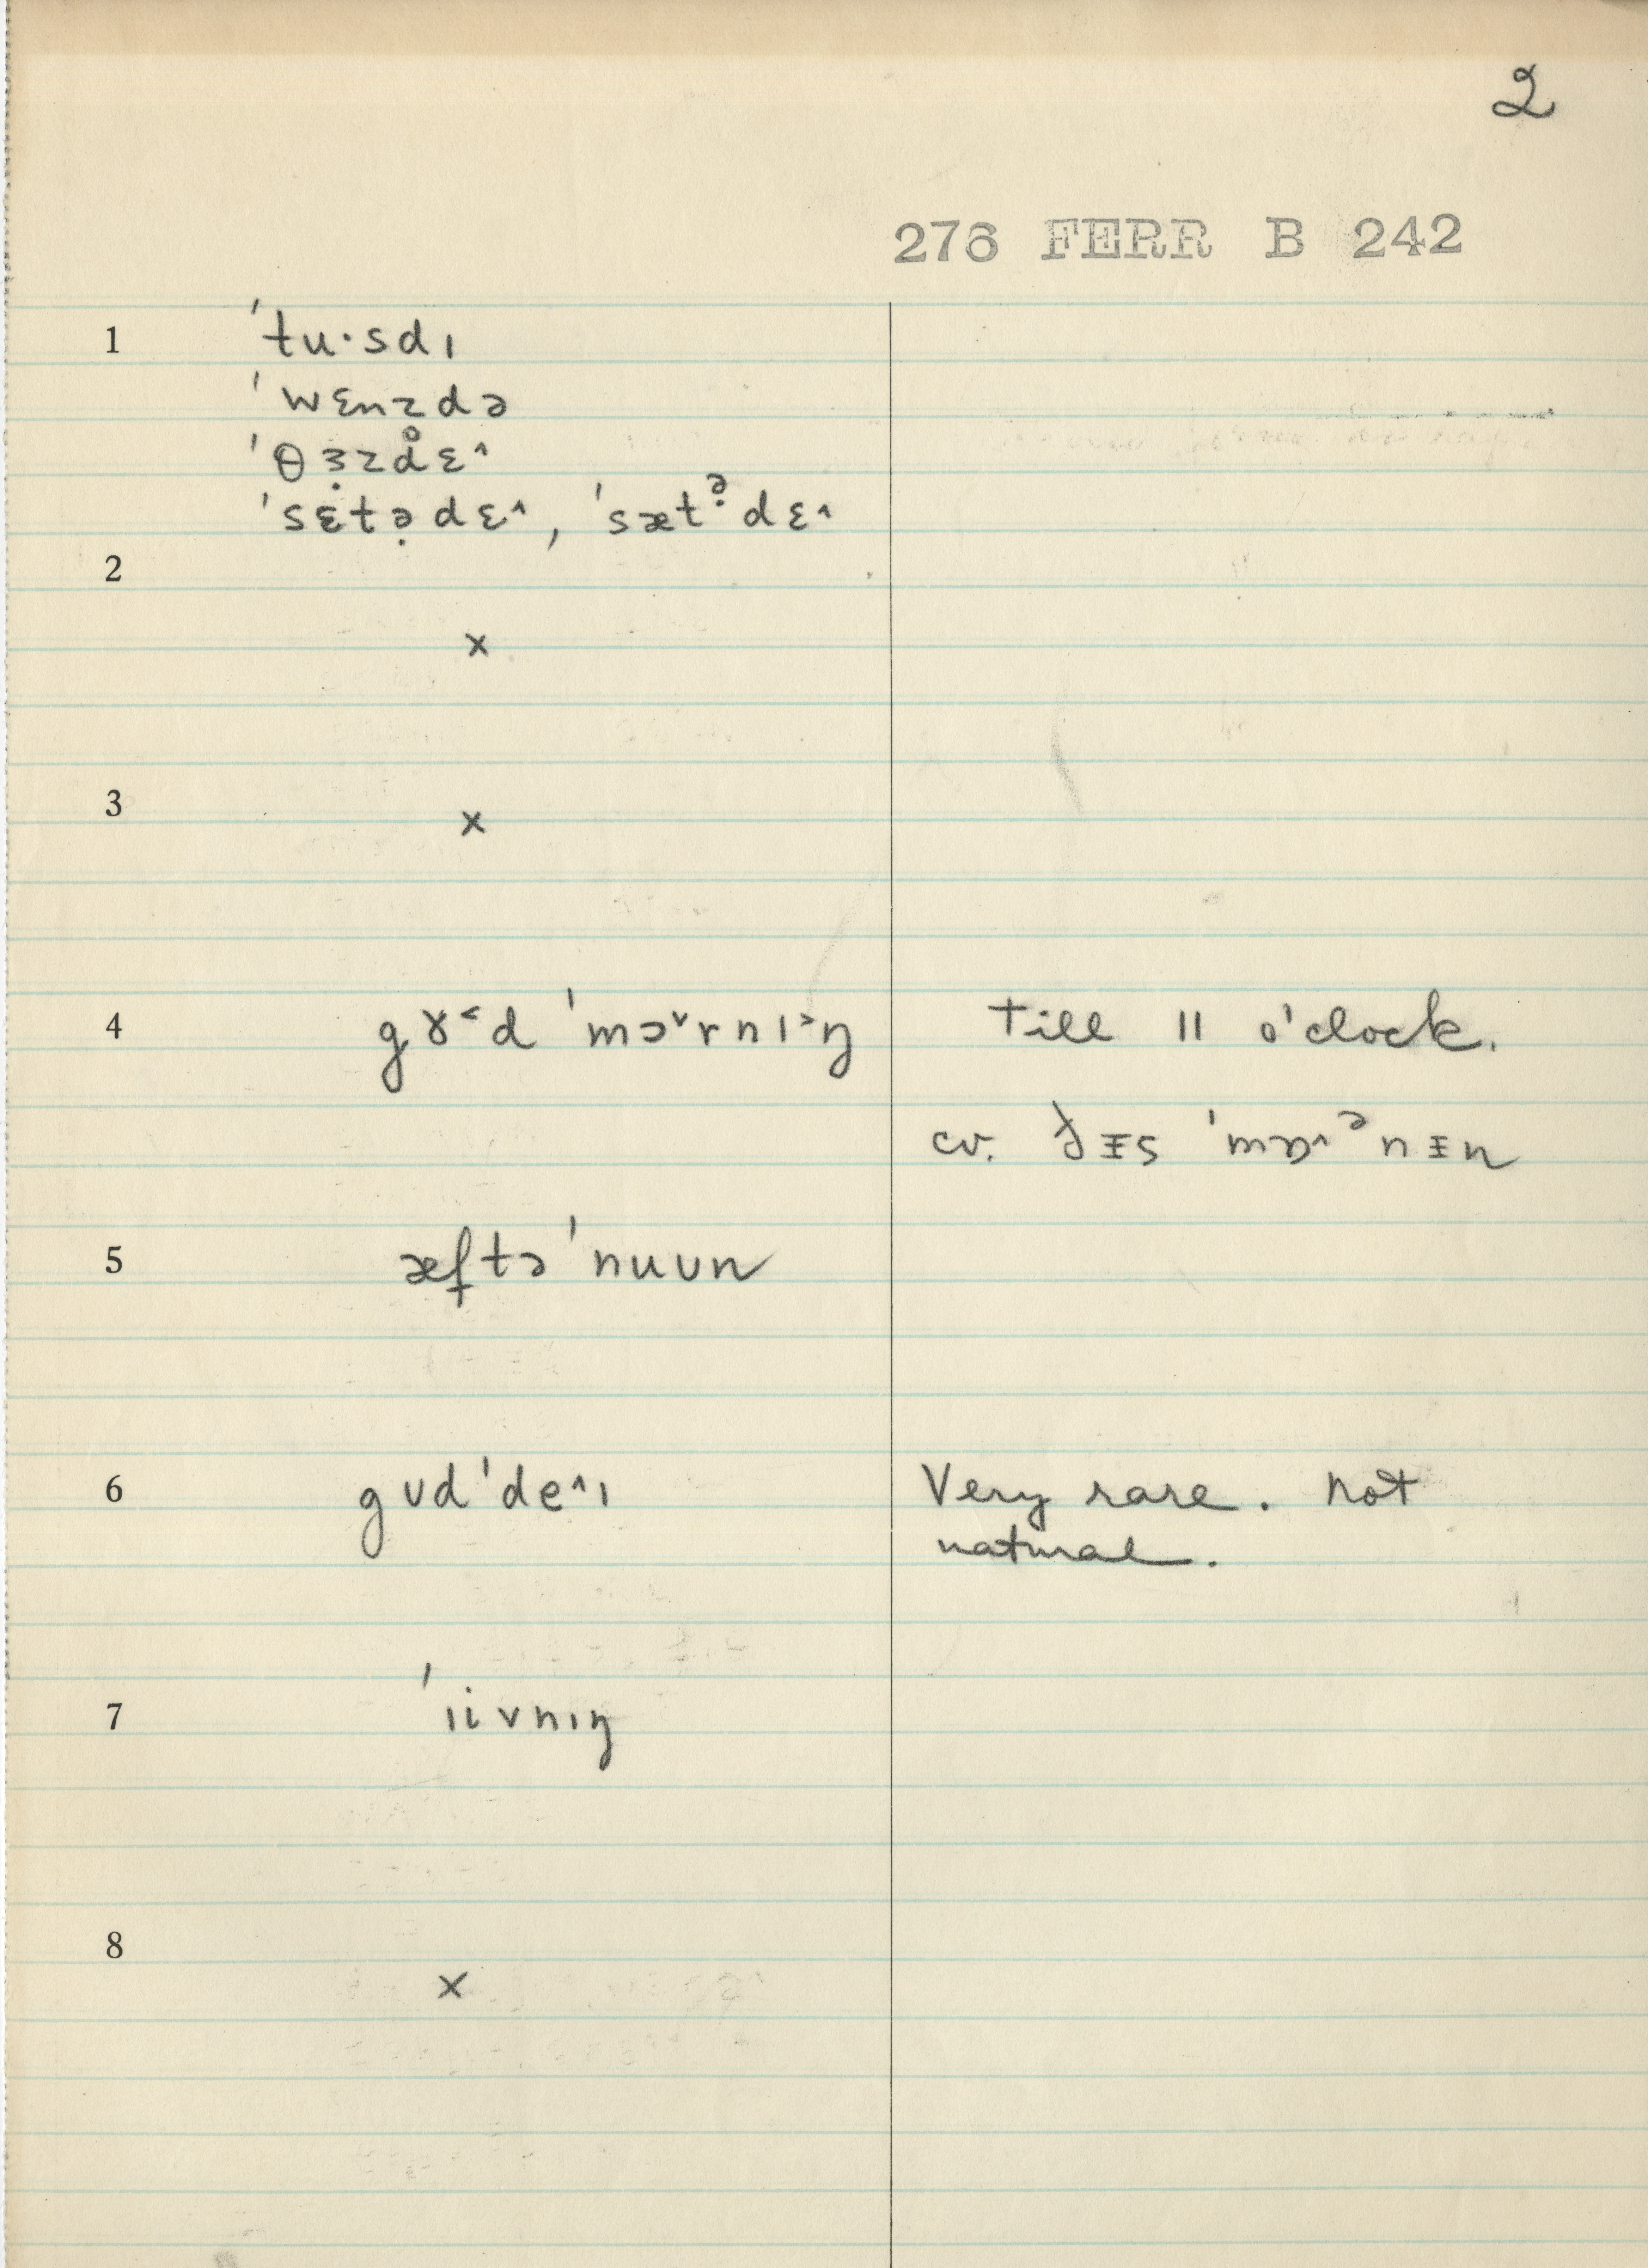 2
276 FERR B 242
1 ˈtu·sdɪ
ˈwɛnzdə
ˈθɜ̣zd̥ɛ˄
ˈsɛtə̣dɛ˄, ˈsætᵊ̣dɛ˄
2
×
3
×
4 gɤ˂d ˈmɔ˅rnɪ˃ŋ till 11 o'clock.
cv. ð̵ɪ̵s ˈmɒ˄ᵊnɪ̵n
5 æftə ˈnuun
6 gʊd ˈde˄ɪ Very rare. Not
natural.
7 ˈɪivnɪŋ
8
×